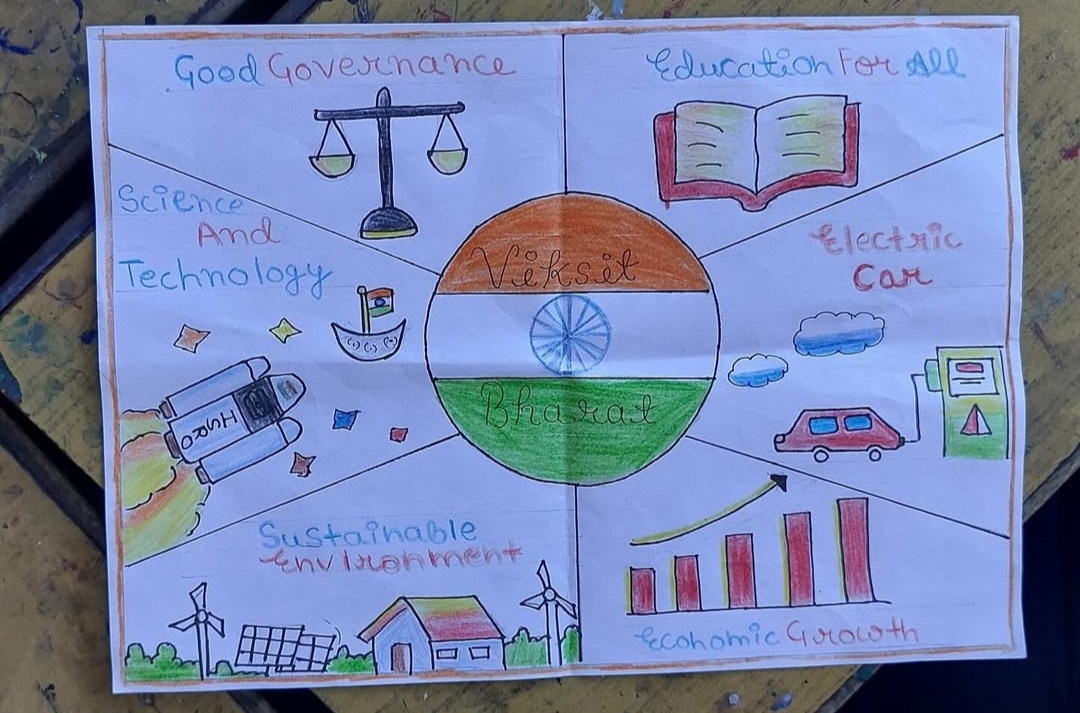 Good Governance
Education For All
Science
And
Technology
Electric
Car
Viksit
Bharat
ISRO
Sustainable
Environment
Economic Growth